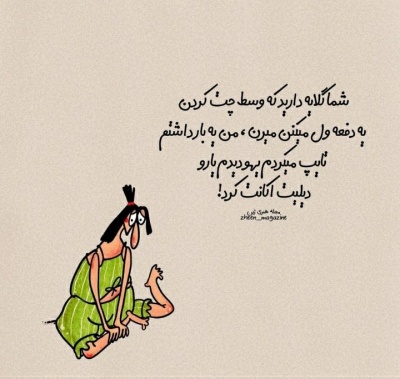 شما گلایه دارید که وسط چت کردن
یه دفعه ول میکنن میرن، من یه بار داشتم
تایپ میکردم یهو دیدم یارو
دیلیت اکانت کرد!
مجله هنری ژین
zheen_magazine